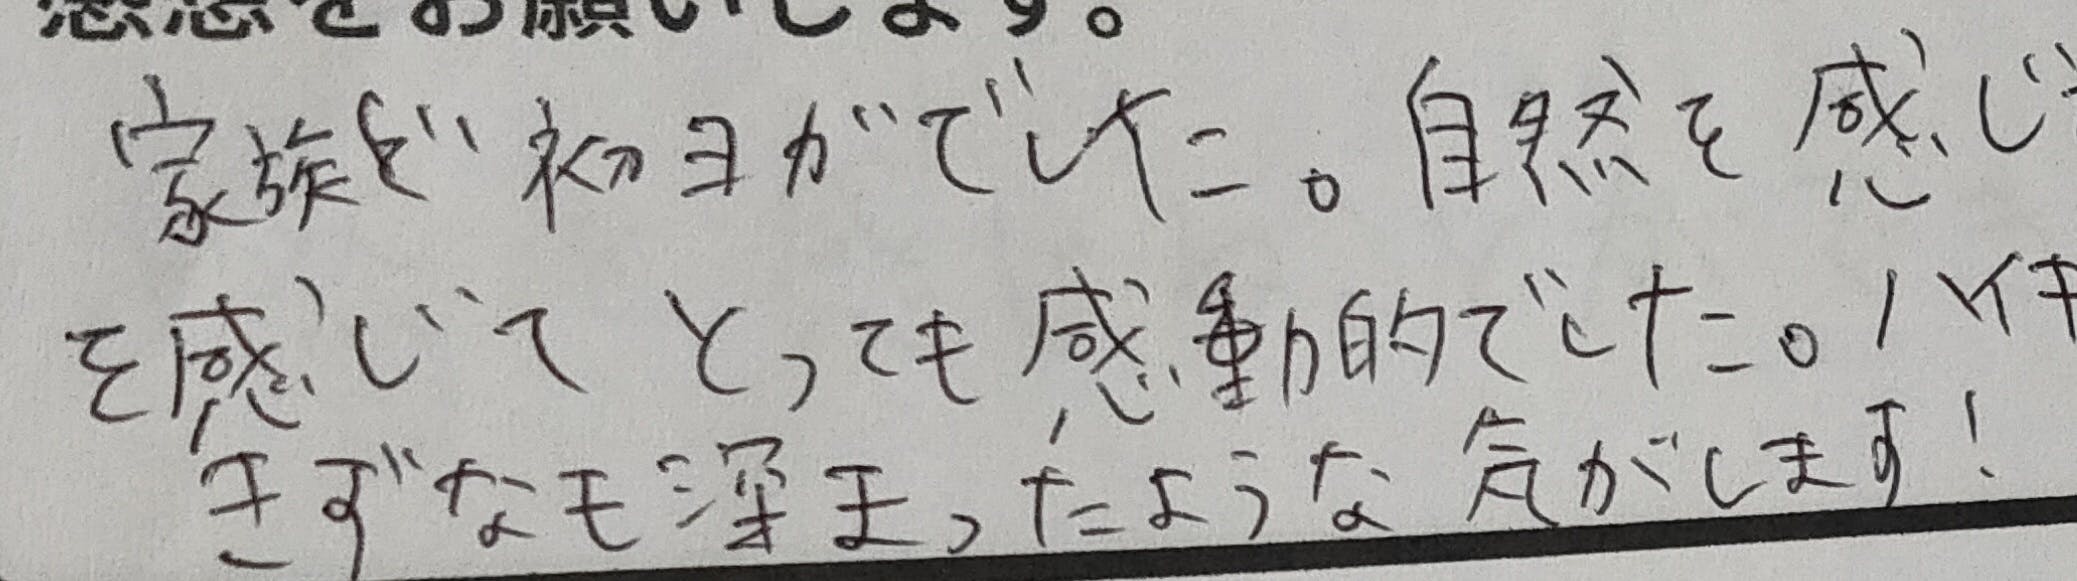 感想をお願いします。
家族で初ヨガでした。自然を感じ
を感じてとっても感動的でした。ハイキ
きずなも深まったような気がします！